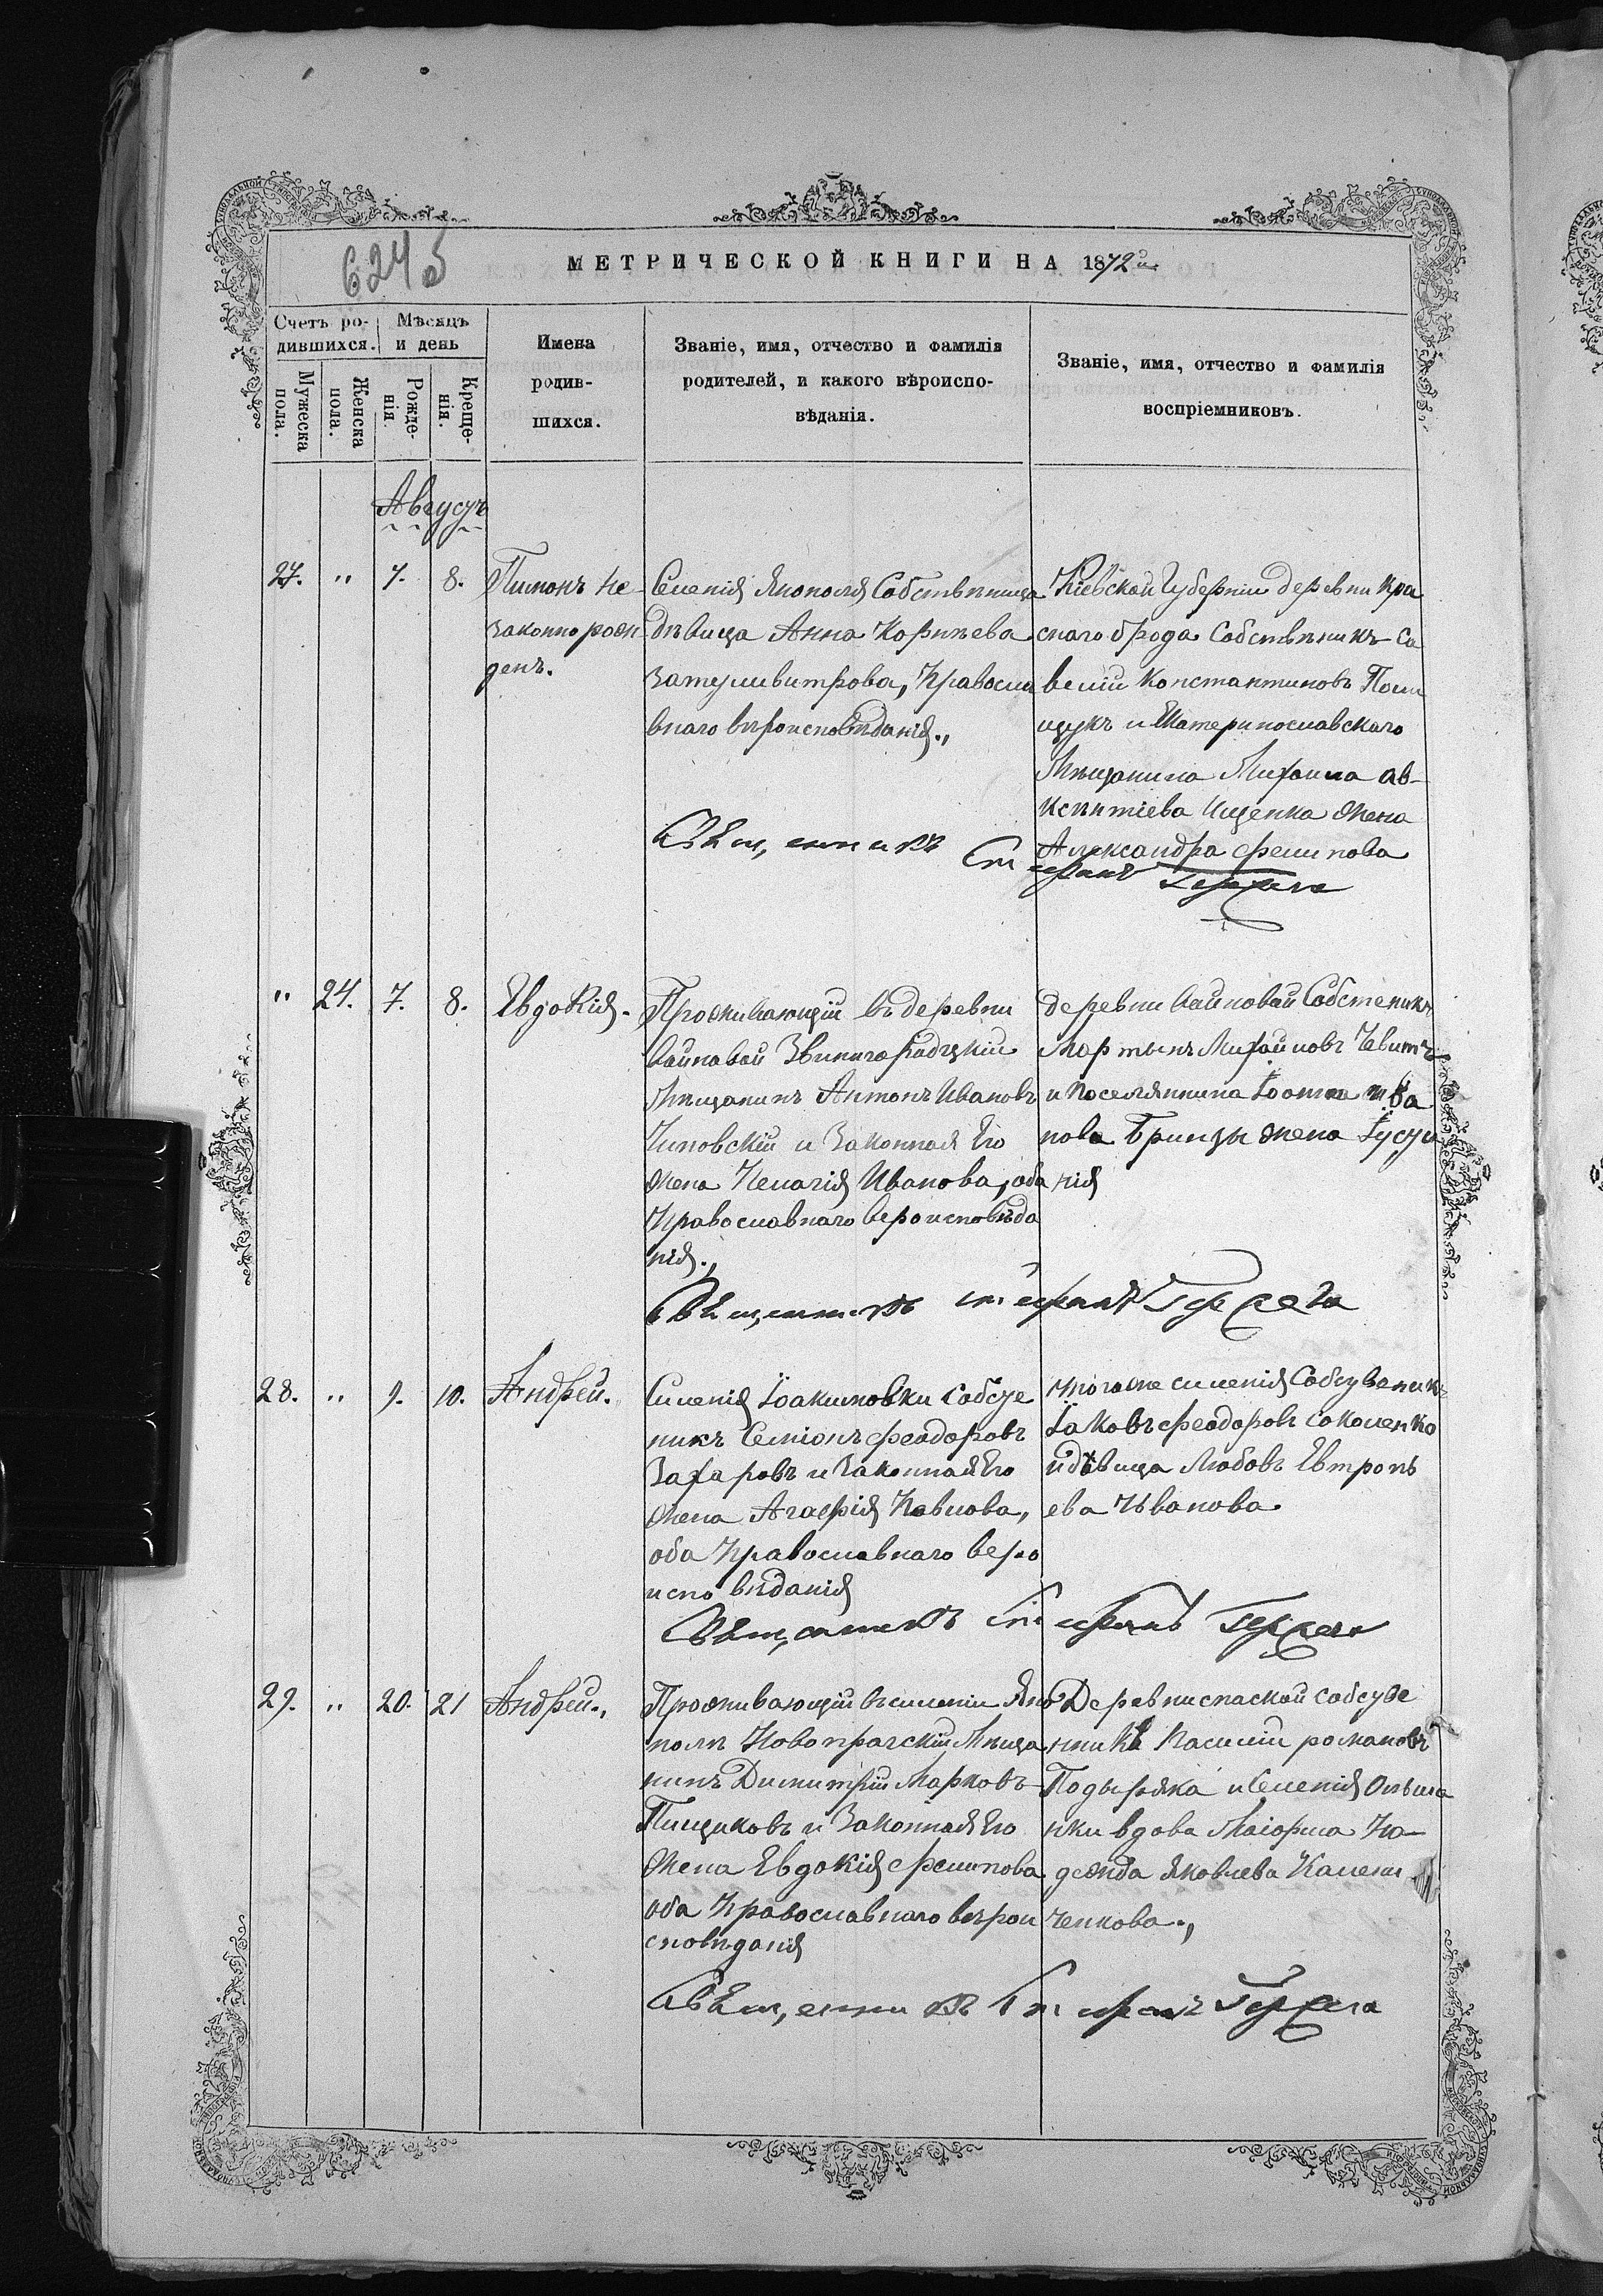 624 б
МЕТРИЧЕСКОЙ КНИГИ НА 1872й
Счетъ ро-
дившихся.
Мѣсяцъ
и день
Мужеска
пола.
Женска
пола.
Рожде-
нія.
Креще-
нія.
Имена
родив-
шихся.
Званіе, имя, отчество и фамилія
родителей, и какого вѣроиспо-
вѣданія.
Званіе, имя, отчество и фамилія
воспріемниковъ.
Августъ
27. " 7. 8.
Пимонъ не-
законорож
денъ.
Селенія Янополя Собствѣнница
дѣвица Анна Корнѣева
Затуливитрова, Правосла
внаго вѣроисповѣданія.,
Кіевской Губерніи деревни Кра
снаго брода Собствѣникъ Са
велій Константиновъ Поли
щукъ и Екатеринославскаго
Мѣщанина Михаила Ав-
ксѣнтіева Ищенка жена
Александра Филипова
Священникъ Стефанъ
" 24. 7. 8.
Евдокія.
Проживающій въ деревни
Вайновой Звинигородзкій
Мѣщанинъ Антонъ Ивановъ
Чиповскій и Законная Его
жена Пелагія Иванова, оба
Православнаго вероисповѣда
нія.,
деревни Вайновой Собстеникъ
Мартынъ Михайловъ
и поселянина Іоанна Ива
нова Бринзы жена Іусти
нія
Священникъ Стефанъ
28. " 9. 10.
Андрей.
Силенія Іоакимовки Собсте
никъ Семіонъ Феодоровъ
Захаровъ и Законная Его
жена Агафія Павлова,
оба Православнаго веро
исповѣданія
того же силенія Собственикъ
Іаковъ Феодоровъ Соколенко
и дѣвица Любовь Евтропь
ева Иванова
Священникъ Стефанъ
29. " 20. 21
Андрей.,
Проживающій въ силеніи Яно
полѣ Новопрагскій Мѣща
нинъ Димитрій Марковъ
Пищиковъ и Законная Его
жена Евдокія Филипова
оба Православнаго вѣрои
сповѣданія
Деревни спаской собстве
нникъ Василій романовъ
Подыряка и Селенія Ольша
нки вдова Маіорша На-
дежда Яковлева Камени
ченкова.,
Священникъ Стефанъ